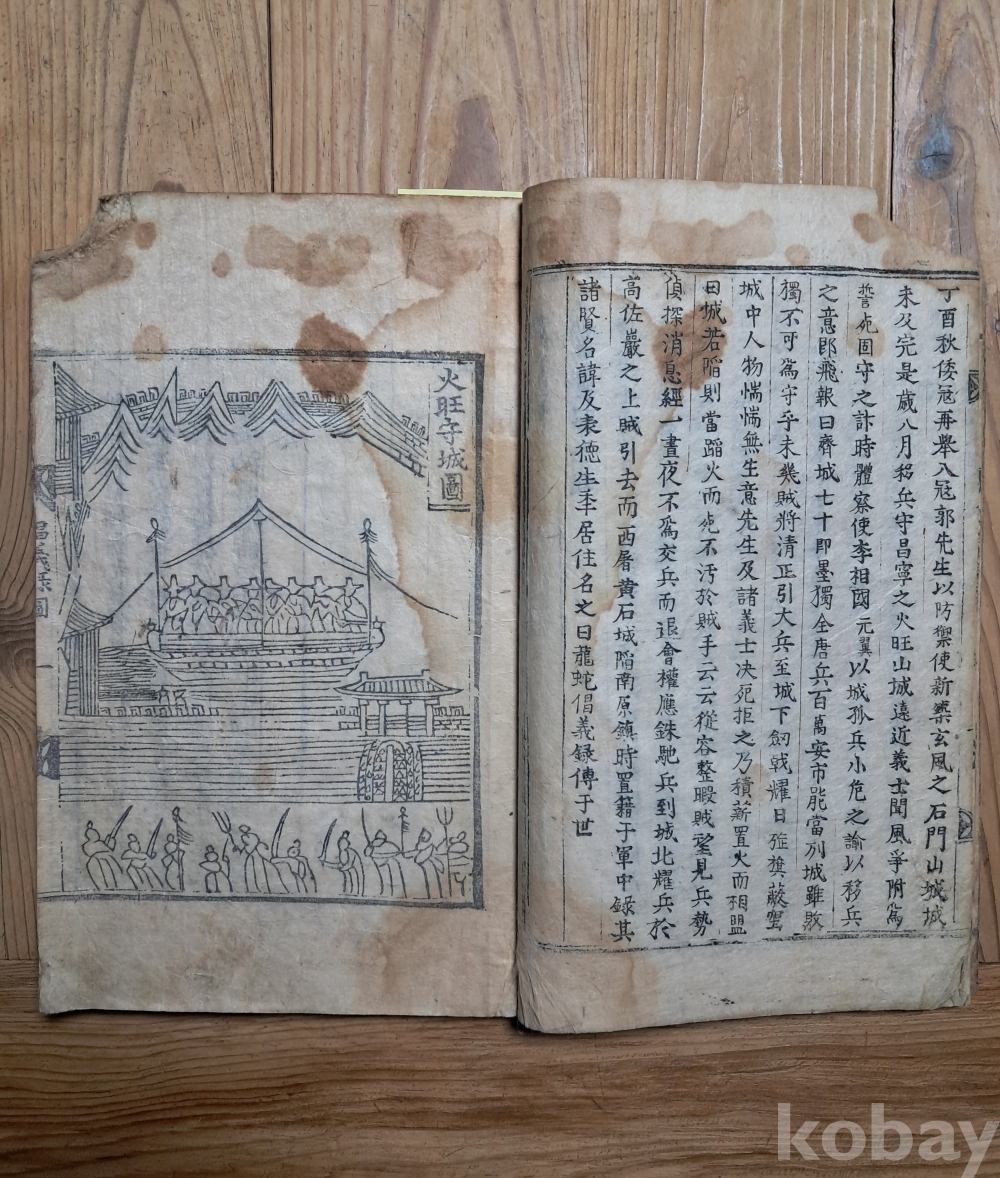 丁酉秋倭冦再舉入冦郭先生以防禦使新築玄風之石門山城城
未及完是歲八月移兵守昌寧之火旺山城遠近義士聞風爭附爲
誓死固守之計時體察使李相國元翼以城孤兵小危之諭以移兵
之意即飛報曰齊城七十即墨獨全唐兵百萬安市能當列城雖敗
獨不可爲守乎未幾賊將清正引大兵至城下釼戟耀日旌旗蔽空
城中人物惴惴無生意先生及諸義士决死拒之乃積薪置火而相盟
曰城若陷則當蹈火而死不汚於賊手云云從容整暇賊望見兵勢
偵探消息經一晝夜不爲交兵而退會權應銖馳兵到城北耀兵於
高佐巖之上賊引去而西屠黄石城陷南原鎮時置籍于軍中録其
諸賢名諱及表德生年居住名之曰龍蛇倡義録傳于世
火旺守城圖
倡義録圖
一
kobay